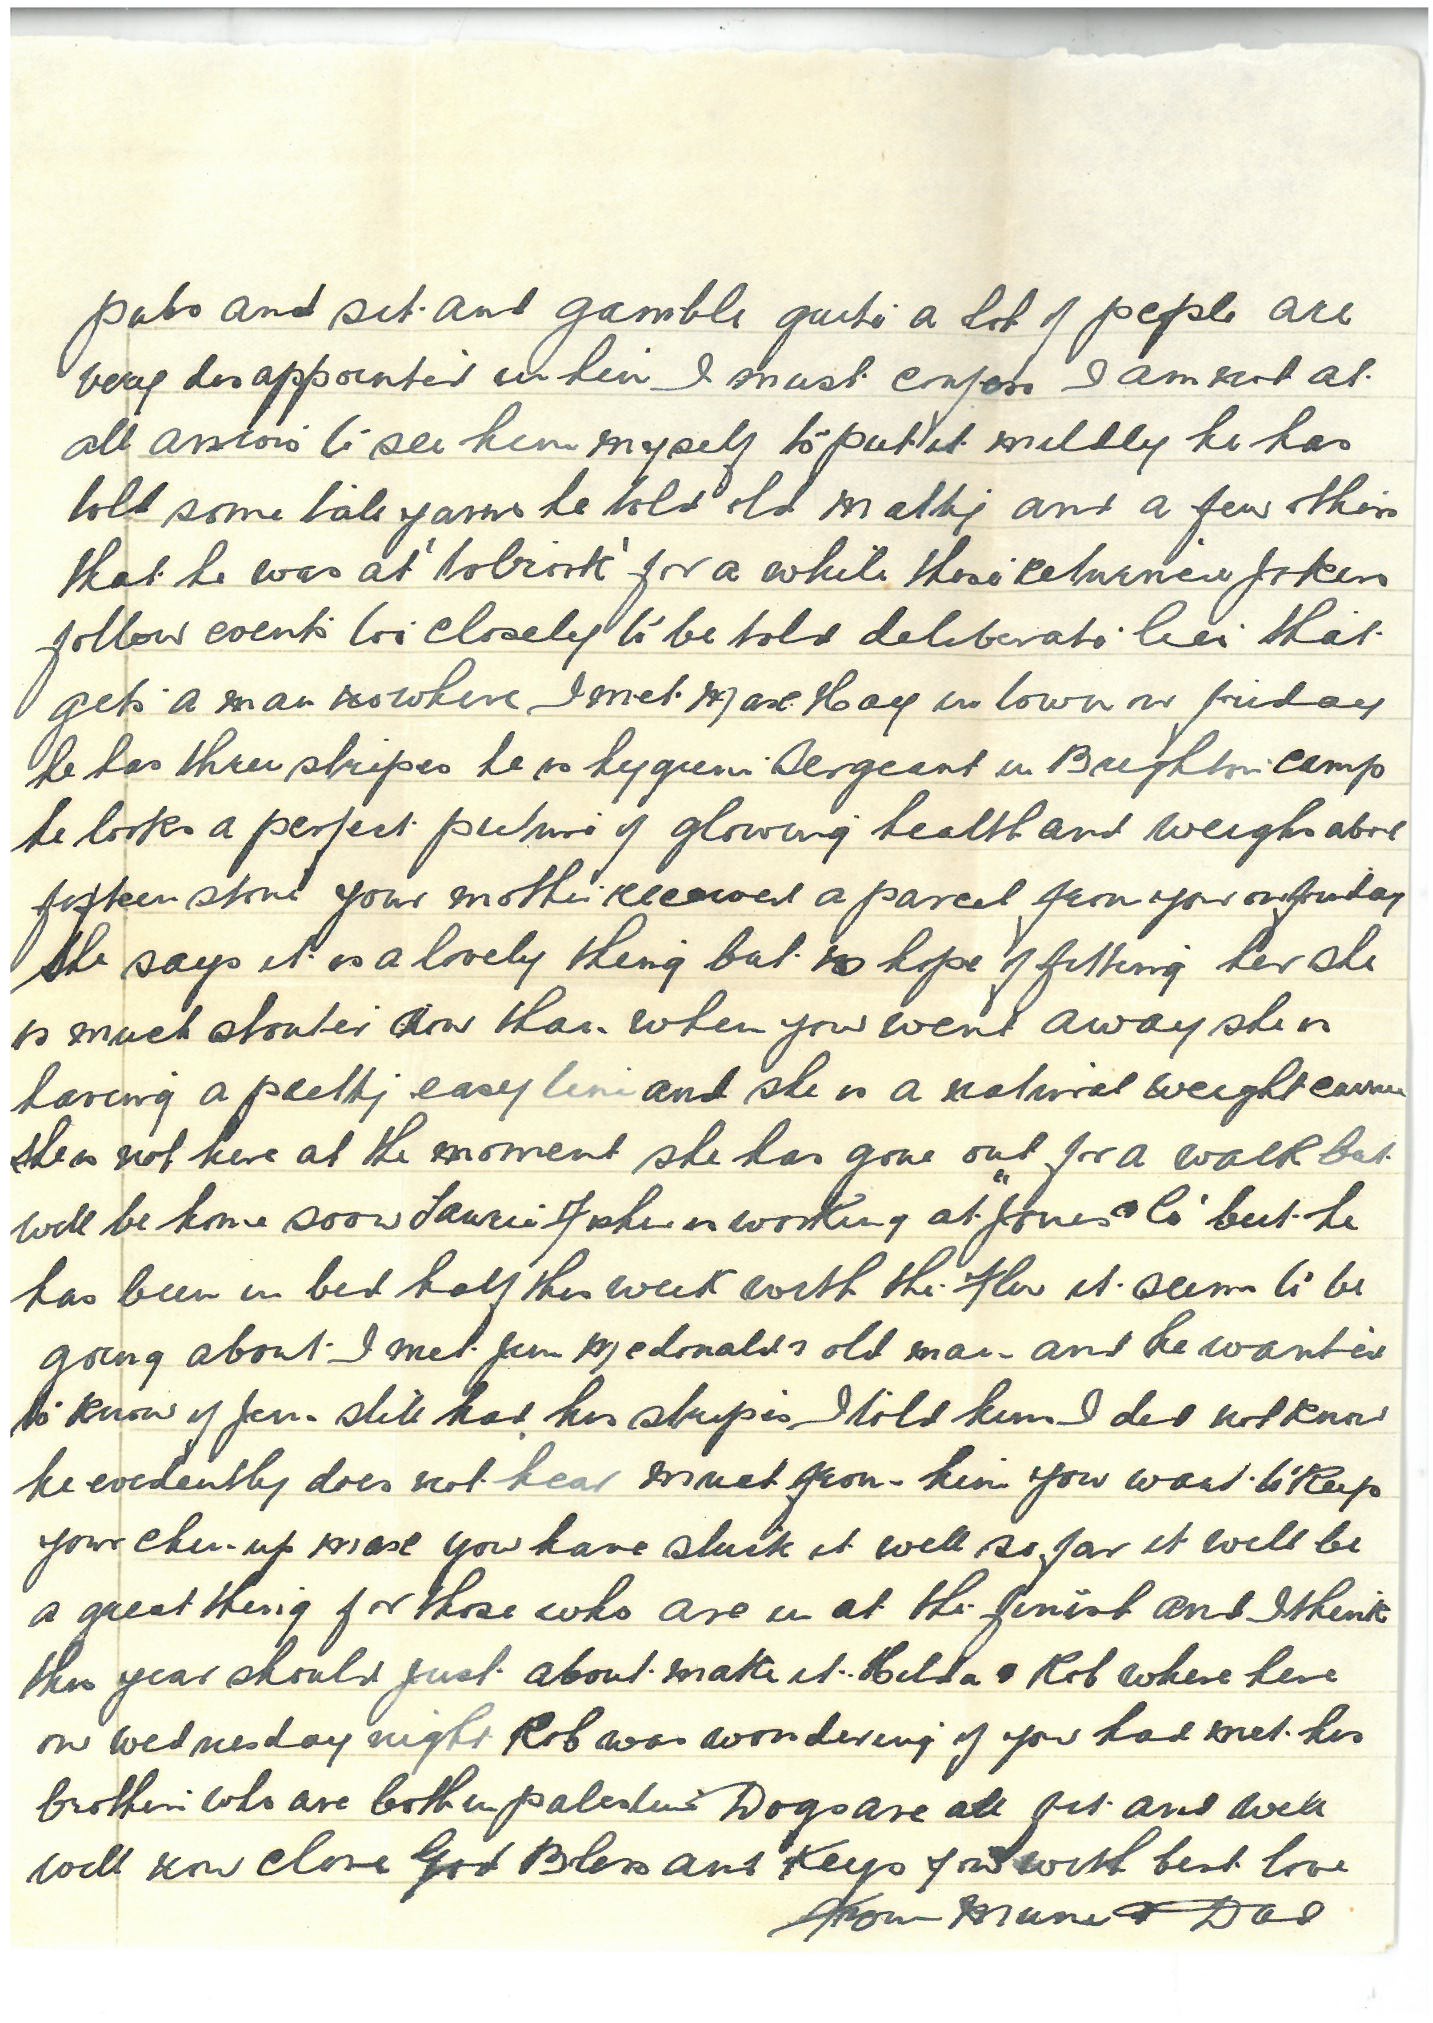 pubs and sit and gamble quite a lot of people are
very disappointed in him I must confess I am not at
all anxious to see him myself to put it mildly he has
told some tale yarns he told old Matty and a few others
that he was at 'tobrouk' for a while these returned jokers
follow events too closely to be told deliberate lies that
gets a man nowhere I met Max Hay in town on friday
he has three stripes he is hygiene Sergeant in Brighton camp
he looks a perfect picture of glowing health and weighs about
fifteen stone your mother received a parcel from you on friday
she says it is a lovely thing but no hope of fitting her she
is much stouter now than when you went away she is
having a pretty easy time and she is a natural weight carrier
she is not here at the moment she has gone out for a walk but
will be home soon Laurie Fisher is working at "Jones & Co" but he
has been in bed half this week with the flu it seems to be
going about I met Jim Mcdonald's old man and he wanted
to know if Jim still had his stripes I told him I did not know
he evidently does not hear much from him you want to keep
your chin up Max you have stuck it well so far it will be
a great thing for those who are in at the finish and I think
this year should just about make it Hilda & Rob where here
on wednesday night Rob was wondering if you had met his
brothers who are both in palestine Dogs are all fit and well
will now close God Bless and Keep you with best love
from Mum & Dad